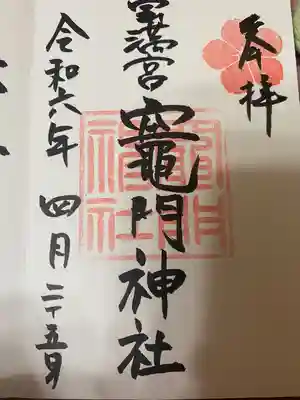 奉拝
宝満宮
竈門神社
令和六年 四月二十五日
竈門
神社